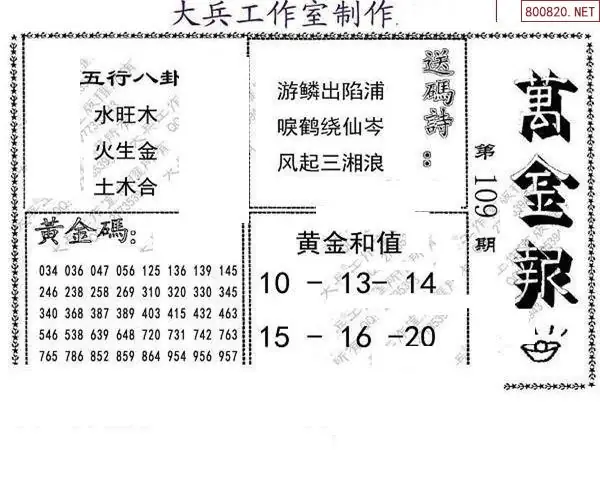 大兵工作室制作
800820.NET
五行八卦
水旺木
火生金
土木合
送碼詩：
游鳞出陷浦
唳鹤绕仙岑
风起三湘浪
萬金報
第109期
黄金碼：
034 036 047 056 125 136 139 145
246 238 258 269 310 320 330 345
340 368 387 389 403 415 432 463
546 538 639 648 720 731 742 763
765 786 852 859 864 954 956 957
黄金和值
10 - 13- 14
15 - 16 -20